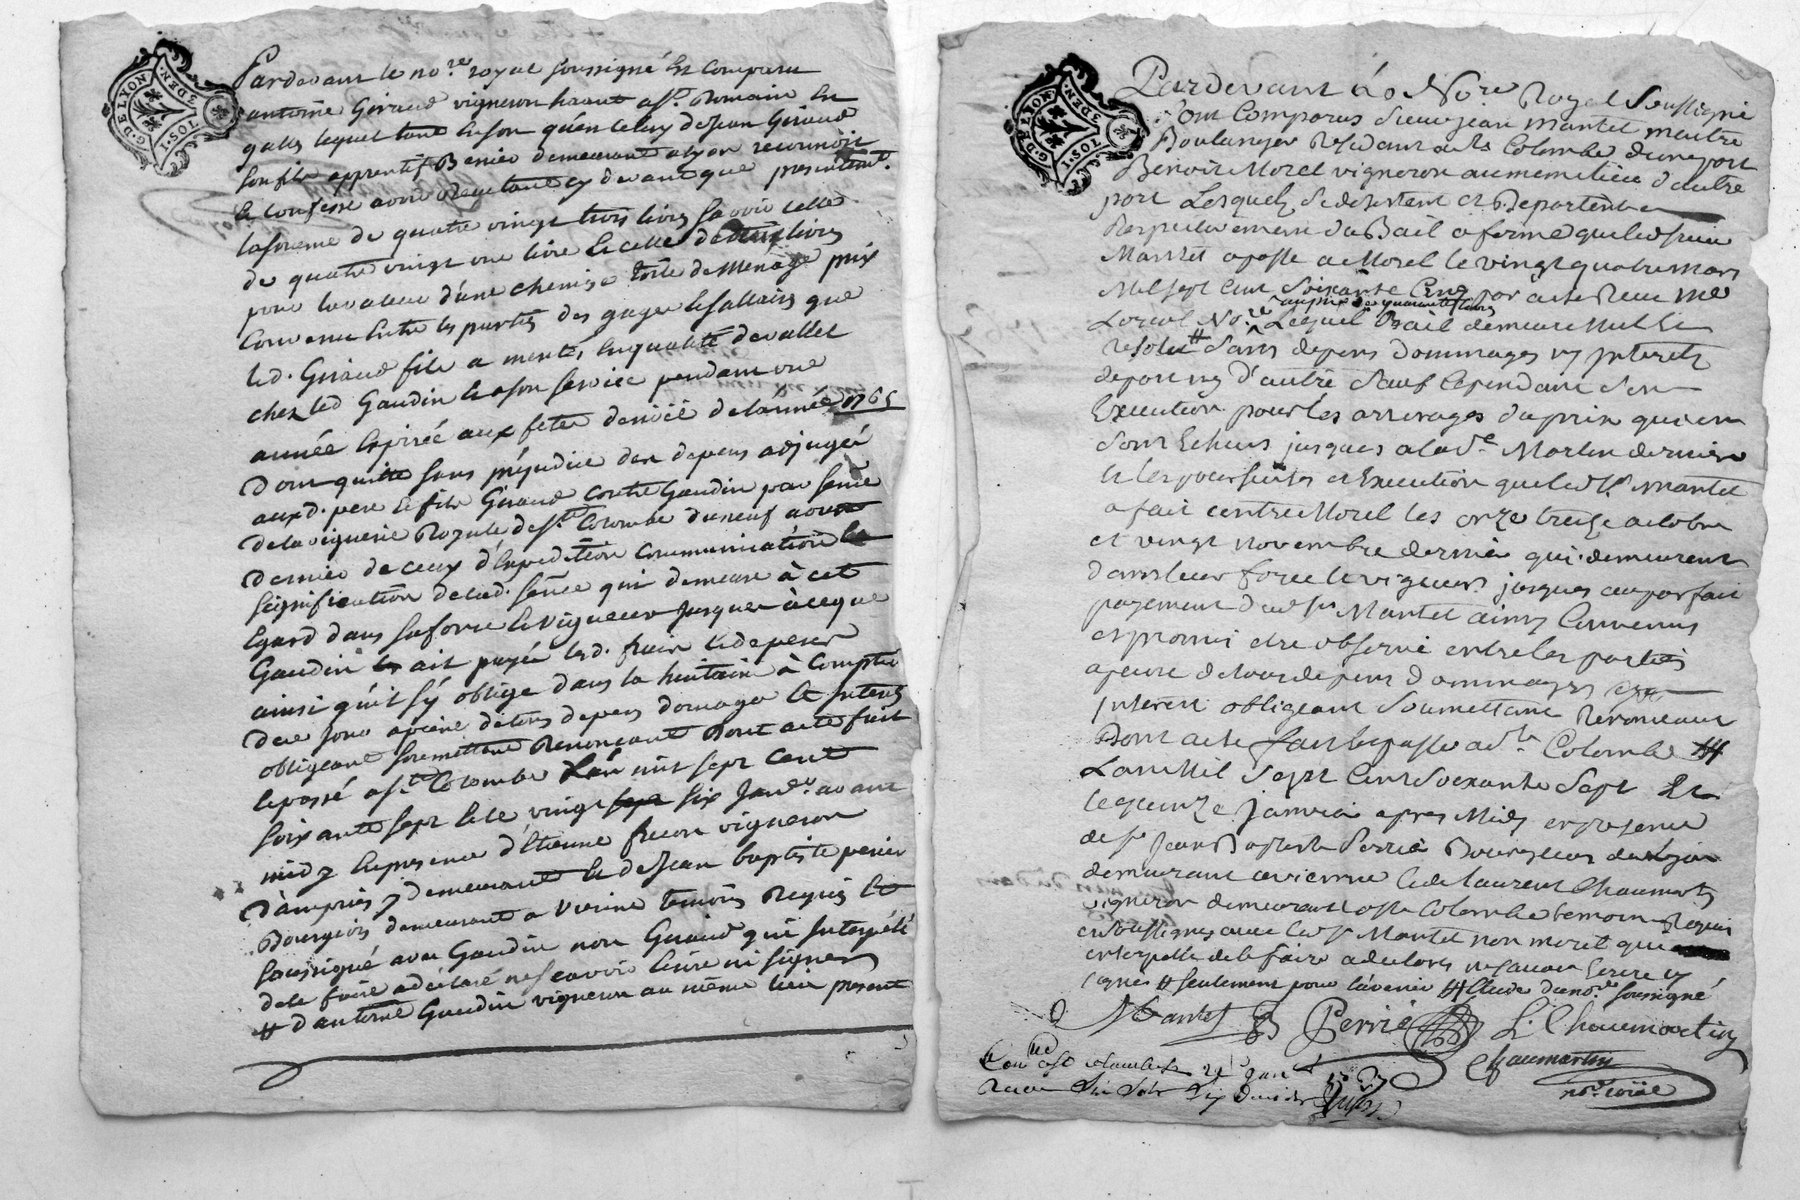 G. DE LYON
I·SOL
3 DEN.
Pardevant le no.re royal soussigné Est Comparu
antoine Giraud vigneron habitant a St. Romain En
galles lequel tant En son qu'en celuy de Jean Giraud
son fils apprentif demeurant a lyon reconnoit
Et confesse avoir reçu tant cy devant que présentem.t
la somme de quatre vingt trois livres Savoir celle
de quatre vingt une livre Et celle de deux livres
pour la valeur d'une chemise toile de Ménage prix
Convenu Entre les parties des gages Et sallaires que
led. Giraud fils a mérités En qualité de vallet
chez led Gaudin Et a son service pendant une
année Expirée aux fetes de noël de l'année 1765
Dont quitte sans préjudice des depens adjugés
auxd. pere Et fils Giraud contre Gaudin par sence
de la viguerie Royale de Ste. Colombe du neuf aout
dernier de ceux d'Expedition Communication Et
Signification de lad. sence qui demeure à cet
Egard dans sa force Et vigueur Jusques à ce que
Gaudin ait payée lesd. frais Et depens
ainsi qu'il s'y oblige dans la huitaine à Compter
de ce jour a peine de tous depens domages Et Interets
obligeant Soumettant Renonçant Dont acte fait
Et passé a Ste Colombe L'an mil sept cent
soixante sept Et le vingt six Janv.r avant
midy En presence d'Etienne frecon vigneron
d'ampuis y demeurant Et de Jean baptiste perier
Bourgeois demeurant a vienne temoins Requis Et
Soussigné avec Gaudin non Giraud qui Interpellé
de le faire a déclaré ne sçavoir Ecrire ni signer
# d'antoine Gaudin vigneron au même lieu présent
G. DE LYON
I·SOL
3 DEN.
Pardevant le No.re Royal Soussigné
Sont Comparus Sieur Jean Mantet maitre
Boulanger Residant a Ste Colombe d'une part
Benoit Morel vigneron au meme lieu d'autre
part Lesquels Se desistent et Departent
Respectivement du Bail a ferme que led sieur
Mantet a passé a Morel le vingt quatre Mars
Mil sept Cent Soixante Cinq par acte Recu Me
au prix de quarante livres
No.re Lequel Bail demeure Nul Et
resolu # Sans depens Dommages ny Interets
de part ny d'autre Sauf Cependant Son
Execution pour les arrerages du prix qui en
Sont Echeus jusques a la St. Martin derniere
Et les poursuites et Execution que led Sr. Mantet
a fait contre Morel les onze treize octobre
et vingt novembre dernier qui demeurent
dans leur force Et vigueur jusques au parfait
payement dud Sr Mantet ainsy Convenus
et promis etre observé entre les parties
a peine de tous depens dommages
Interets obligeant Soumettant Renonceant
Dont acte fait Et passé a Ste Colombe #
L'an Mil Sept Cent Soixante Sept Et
le quinze Janvier apres Midy en presence
de Sr Jean Baptiste Perrié Bourgeois de Lyon
demeurant a vienne Et de Laurent Chaumartin
vigneron demeurant a Ste Colombe temoins Requis
et Soussignes avec led Sr Mantet non morel qui
interpellé de le faire a declaré ne scavoir Ecrire ny
signer # seulement pour l'avenir # Etude du no.re soussigné
Mantet Perrié L. Chaumartin
Chaumartin
no.re roial
Con.lé a Ste Colombe le 29 Janv. 1767
Recu Six Sols Six deniers